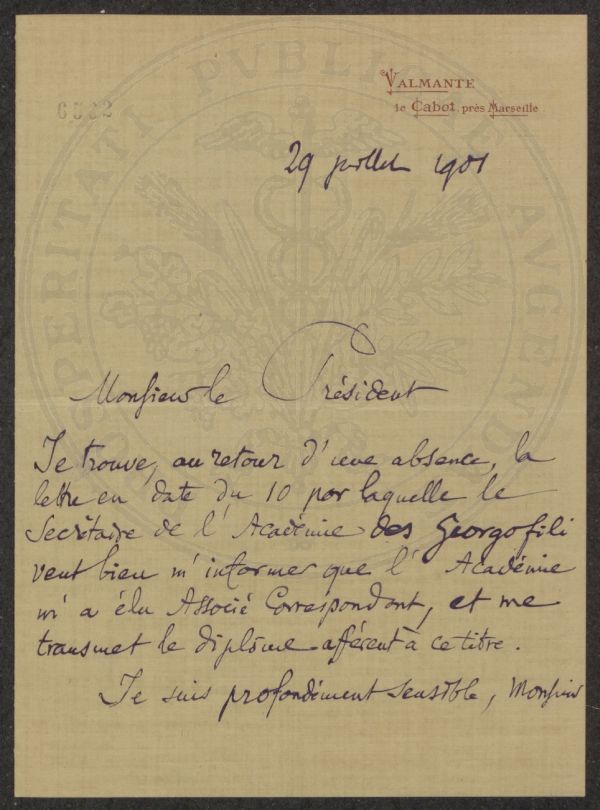 VALMANTE
le Cabot, près Marseille
6502
29 juillet 1901
Monsieur le Président
Je trouve, au retour d'une absence, la
lettre en date du 10 par laquelle le
Secrétaire de l'Académie des Georgofili
veut bien m'informer que l'Académie
m'a élu Associé Correspondant, et me
transmet le diplôme afférent à ce titre.
Je suis profondément sensible, Monsieur
PROSPERITATI PVBLICAE AVGENDAE